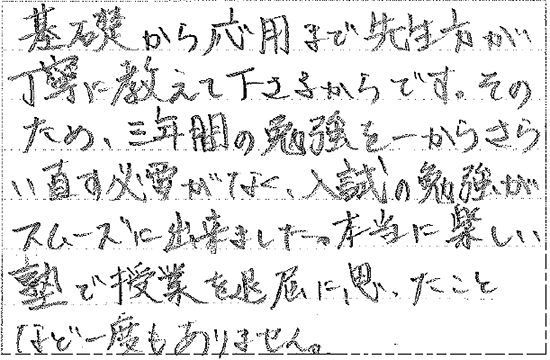 基礎から応用まで先生方が
丁寧に教えて下さるからです。その
ため、三年間の勉強を一からさら
い直す必要がなく、入試の勉強が
スムーズに出来ました。本当に楽しい
塾で授業を退屈に思ったこと
など一度もありません。